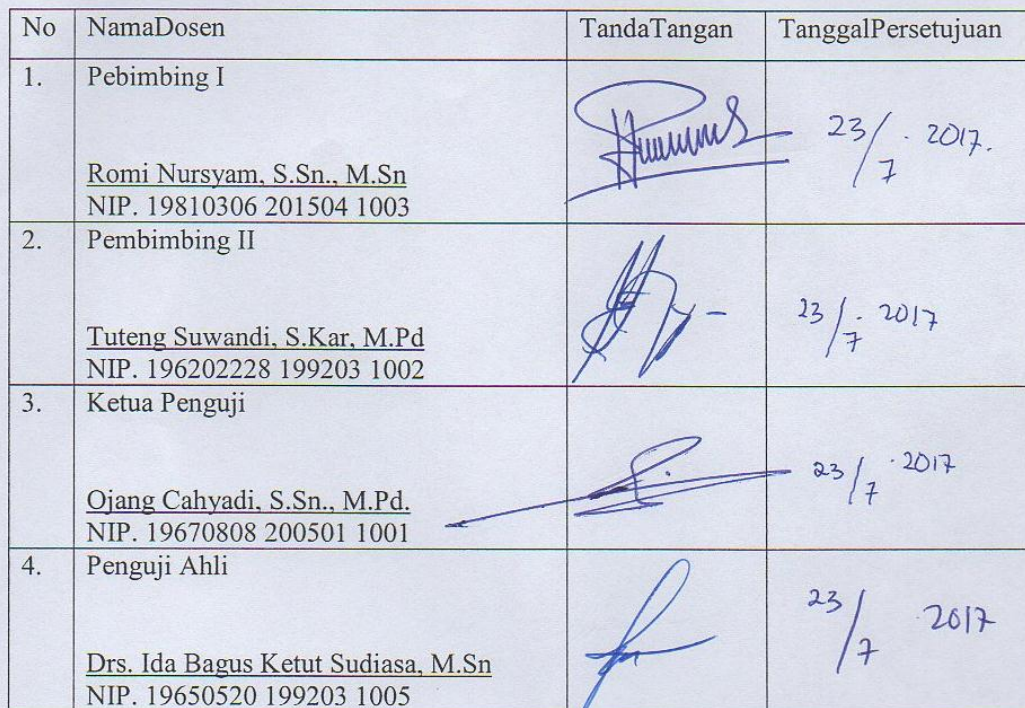 No NamaDosen TandaTangan TanggalPersetujuan
1. Pebimbing I
23/7 . 2017.
Romi Nursyam, S.Sn., M.Sn
NIP. 19810306 201504 1003
2. Pembimbing II
23/7 . 2017
Tuteng Suwandi, S.Kar, M.Pd
NIP. 196202228 199203 1002
3. Ketua Penguji
23/7 . 2017
Ojang Cahyadi, S.Sn., M.Pd.
NIP. 19670808 200501 1001
4. Penguji Ahli
23/7 2017
Drs. Ida Bagus Ketut Sudiasa, M.Sn
NIP. 19650520 199203 1005